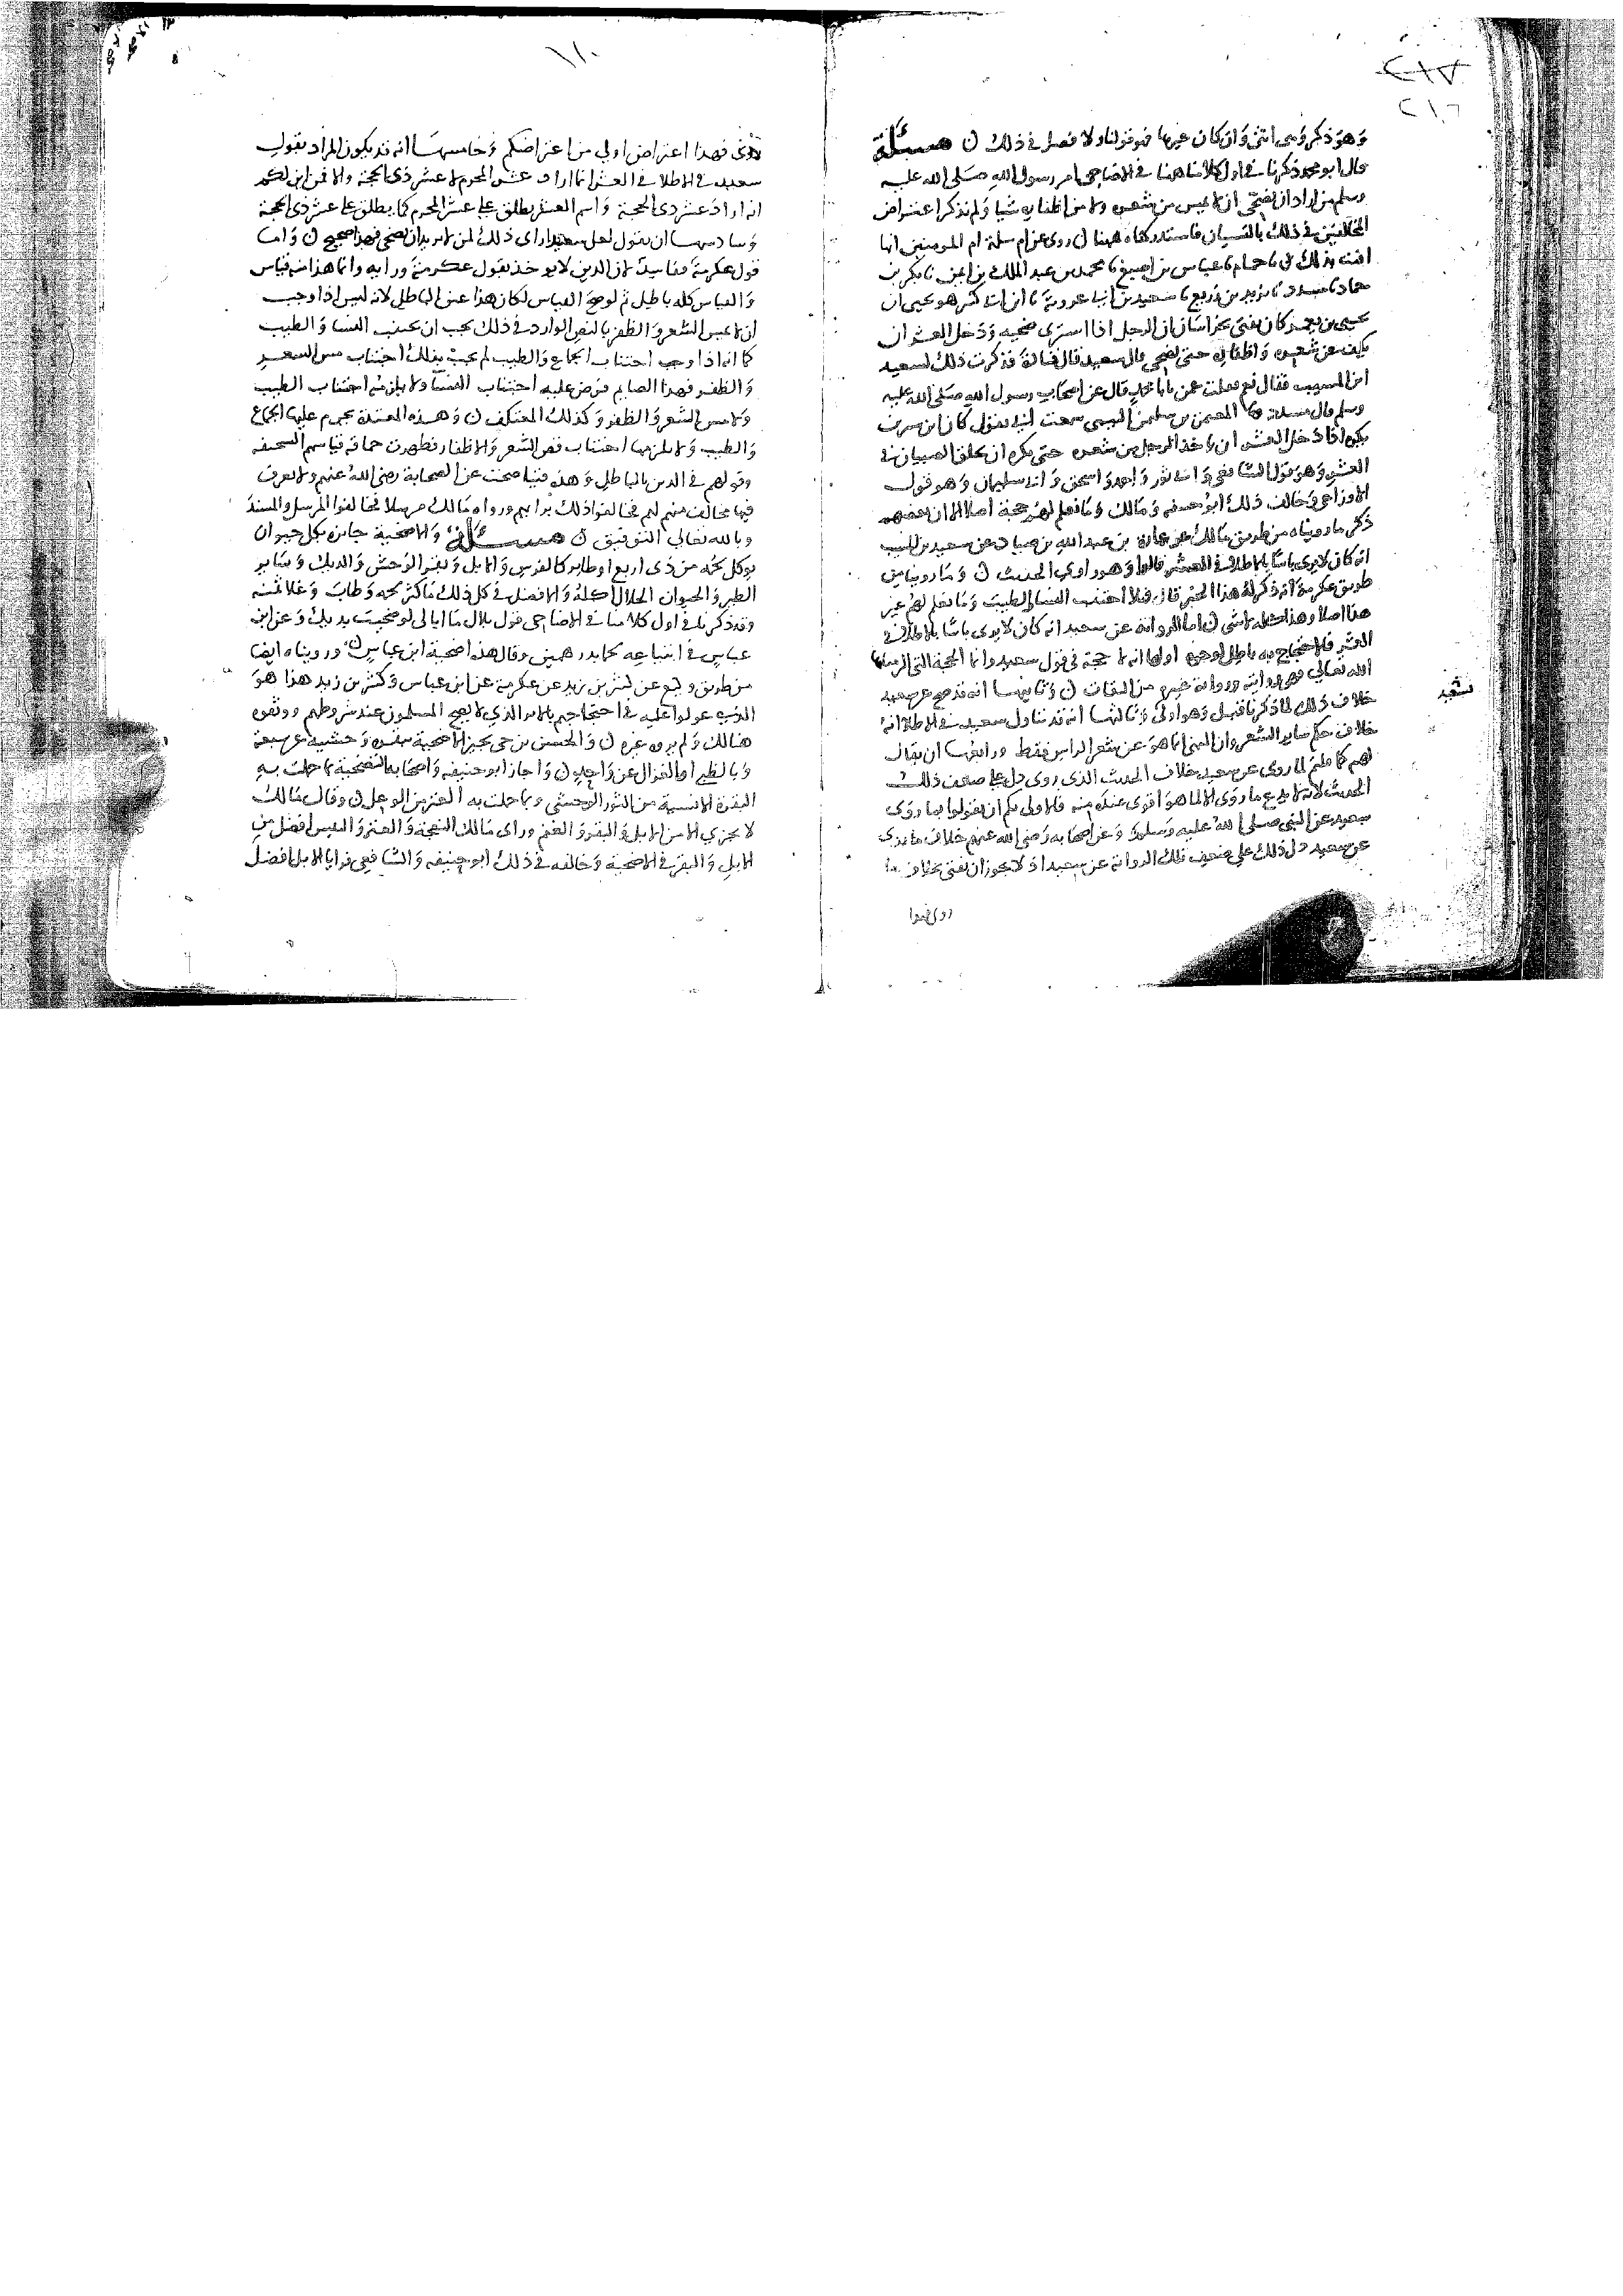 وهو ذكر وهي انثى وان كان غيرها فهو قولنا ولا فصل في ذلك ن مسئلة
قال ابو محمد ذكرنا في اول كلامنا هنا في الاضاحي امر رسول الله صلى الله عليه
وسلم من اراد ان يضحي ان لا يمس من شعره ولا من اظفاره شيا ولم نذكر اعتراض
المخالفين في ذلك بالنسيان فاستدركناه ههنا ن روي عن ام سلمة ام المومنين انها
افتت بذلك نا حمام نا عباس بن اصبغ نا محمد بن عبد الملك بن ايمن نا بكر بن
حماد نا مسدد نا يزيد بن زريع نا سعيد بن ابي عروبة نا ان كثير هو يحيى ان
يحيى بن يعمر كان يفتي بخراسان ان الرجل اذا اشترى ضحيه ودخل العشر ان
يكف عن شعره واظفاره حتى يضحي قال سعيد قال قتادة فذكرت ذلك لسعيد
ابن المسيب فقال نعم فقلت عمن يا ابا محمد قال عن اصحاب رسول الله صلى الله عليه
وسلم قال مسدد ونا المعتمر بن سليمن التيمي سمعت ابي يقول كان ابن سيرين
يكره اذا دخل العشر ان ياخذ الرجل من شعره حتى يكره ان يحلق الصبيان في
العشر وهو قول الشافعي وابي ثور واحمد واسحق وابي سليمان وهو قول
الاوزاعي وخالف ذلك ابو حنيفه ومالك وما نعلم لهم حجة اصلا الا ان بعضهم
ذكر ما رويناه من طريق مالك عن عمارة بن عبد الله بن صياد عن سعيد بن المسيب
انه كان لا يرى باسا بالاطلا في العشر قالوا وهو راوي الحديث ن وما روينا من
طريق عكرمة انه ذكر له هذا الخبر قال فهلا اجتنب النسا والطيب وما نعلم لهم غير
هذا اصلا وهذا كله لا شي ن اما الرواية عن سعيد انه كان لا يرى باسا بالاطلا في
العشر فالاحتجاج به باطل لوجوه اولها انه لا حجة في قول سعيد وانما الحجة التي الزمناها
الله تعالى فهو روايته ورواية غيره من الثقات ن وثانيها انه قد صح عن سعيد
خلاف ذلك كما ذكرنا قبل وهو اولى وثالثها انه قد تناول سعيد في الاطلا انه
خلاف حكم ساير الشعر وان النهي انما هو عن شعر الراس فقط ورابعها ان يقال
لهم كما قلتم لما روي عن سعيد خلاف الحديث الذي روى دل على ضعف ذلك
الحديث لانه لا يدع ما روى الا لما هو اقوى عنده منه فالاولى بكم ان تقولوا لما روى
سعيد عن النبي صلى الله عليه وسلم وعن اصحابه رضي الله عنهم خلاف ما روي
عن سعيد دل ذلك على ضعف تلك الرواية عن سعيد اذ لا يجوز ان يفتي بخلاف ما
روى فهذا
١١٠
روى فهذا اعتراض اولى من اعتراضكم وخامسها انه قد يكون المراد بقول
سعيد في الاطلا في العشر انما اراد عشر المحرم لا عشر ذي الحجة والا فمن اين لكم
انه اراد عشر ذي الحجة واسم العشر يطلق على عشر المحرم كما يطلق على عشر ذي الحجة
وسادسها ان نقول لعل سعيدا راى ذلك لمن لا يريد ان يضحي فهذا صحيح ن واما
قول عكرمة ففاسد لان الدين لا يوخذ بقول عكرمة ورايه وانما هذا منه قياس
والقياس كله باطل ثم لو صح القياس لكان هذا عين الباطل لانه ليس اذا وجب
ان لا يمس الشعر والظفر بالنص الوارد في ذلك يجب ان يجتنب النسا والطيب
كما انه اذا وجب اجتناب الجماع والطيب لم يجب بذلك اجتناب مس الشعر
والظفر فهذا الصايم فرض عليه اجتناب النسا ولا يلزمه اجتناب الطيب
ولا مس الشعر والظفر وكذلك المعتكف ن وهذه المعتدة يحرم عليها الجماع
والطيب ولا يلزمها اجتناب قص الشعر والاظفار فظهرت حماقة قياسهم السخيفه
وقولهم في الدين بالباطل وهذه فتيا صحت عن الصحابة رضي الله عنهم ولا يعرف
فيها مخالف منهم لهم فخالفوا ذلك برايهم ورواه مالك مرسلا فخالفوا المرسل والمسند
وبالله تعالى التوفيق ن مسئلة والاضحية جايزة بكل حيوان
يوكل لحمه من ذي اربع او طاير كالفرس والابل وبقر الوحش والديك وساير
الطير والحيوان الحلال اكله والافضل في كل ذلك ما كثر لحمه وطاب وغلا ثمنه
وقد ذكرنا في اول كلامنا في الاضاحي قول بلال ما ابالي لو ضحيت بديك وعن ابن
عباس في ابتياعه لحما بدرهمين وقال هذه اضحية ابن عباس ن وروينا ه ايضا
من طريق وكيع عن كثير بن زيد عن عكرمة عن ابن عباس وكثير بن زيد هذا هو
الذي عولوا عليه في احتجاجهم بالاثر الذي لا يصح المسلمون عند شروطهم ووثقوه
هنالك ولم يروه غيره ن والحسن بن حي يجيز الاضحية ببقرة وحشيه عن سبعة
وبالظبي او الغزال عن واحد ن واجاز ابو حنيفه واصحابه التضحية بما حملت به
البقرة الانسية من الثور الوحشي وبما حملت به العنز من الوعل ن وقال مالك
لا يجزي الا من الابل والبقر والغنم وراى مالك النعجة والعنز والتيس افضل من
الابل والبقر في الاضحية وخالفه في ذلك ابو حنيفه والشافعي فرايا الابل افضل